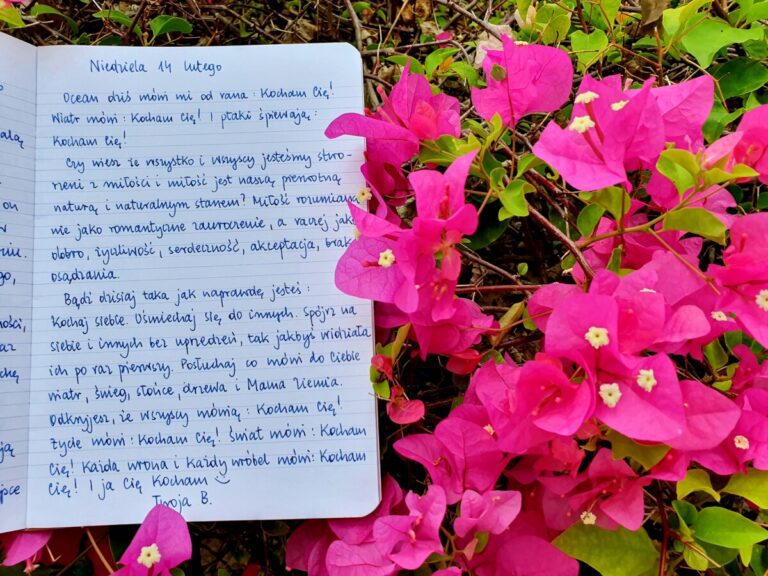 Niedziela 14 lutego
Ocean dziś mówi mi od rana : Kocham Cię!
Wiatr mówi : Kocham Cię! I ptaki śpiewają :
Kocham Cię!
Czy wiesz że wszystko i wszyscy jesteśmy stwo-
rzeni z miłości i miłość jest naszą pierwotną
naturą i naturalnym stanem? Miłość rozumiana
nie jako romantyczne zauroczenie, a raczej jako
dobro, życzliwość, serdeczność, akceptacja, brak
osądzania.
Bądź dzisiaj taka jak naprawdę jesteś :
Kochaj siebie. Uśmiechaj się do innych. Spójrz na
siebie i innych bez uprzedzeń, tak jakbyś widziała
ich po raz pierwszy. Posłuchaj co mówi do Ciebie
wiatr, śnieg, słońce, drzewa i Mama Ziemia.
Odkryjesz, że wszyscy mówią : Kocham Cię!
Życie mówi : Kocham Cię! Świat mówi : Kocham
Cię! Każda wrona i każdy wróbel mówi : Kocham
Cię! I ja Cię Kocham
Twoja B.